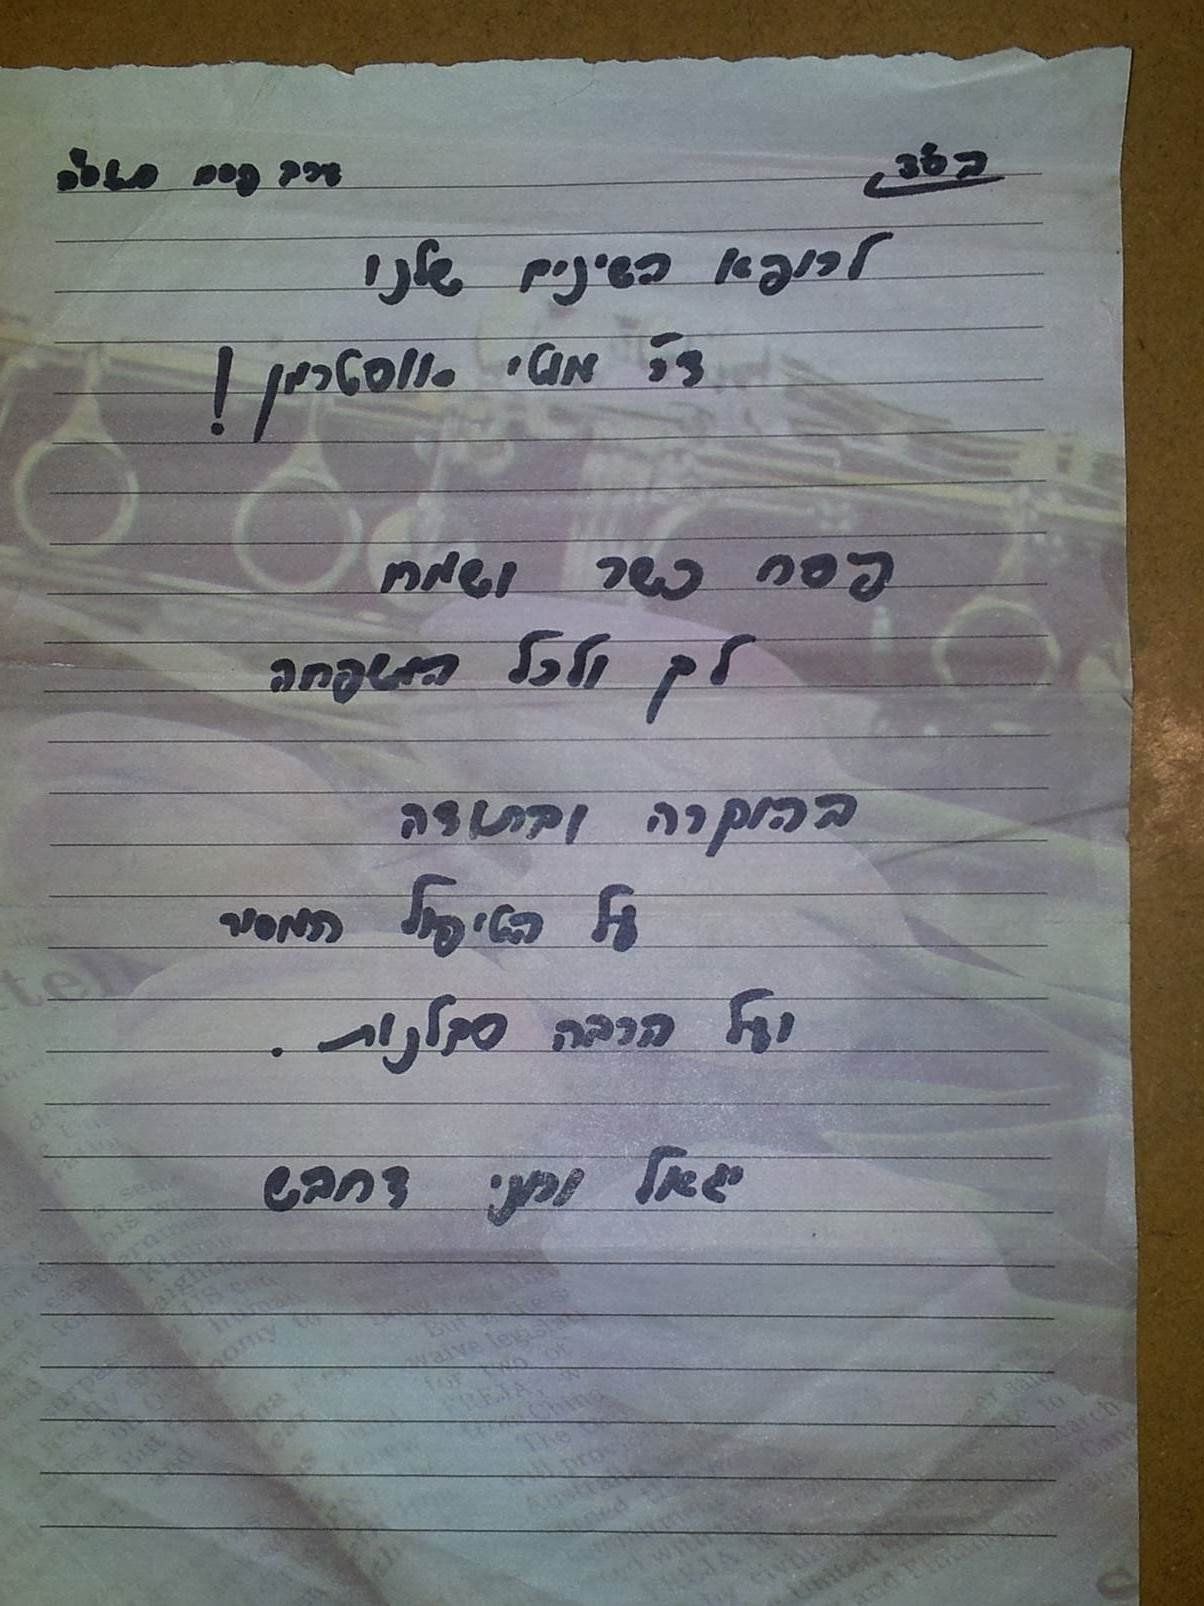 בס"ד ערב פסח תשע"ה
לרופא השיניים שלנו
ד"ר מוטי ווסטרמן!
פסח כשר ושמח
לך ולכל המשפחה
בהוקרה ובתודה
על הטיפול המסור
ועל הרבה סבלנות.
יגאל ורוני דחבש